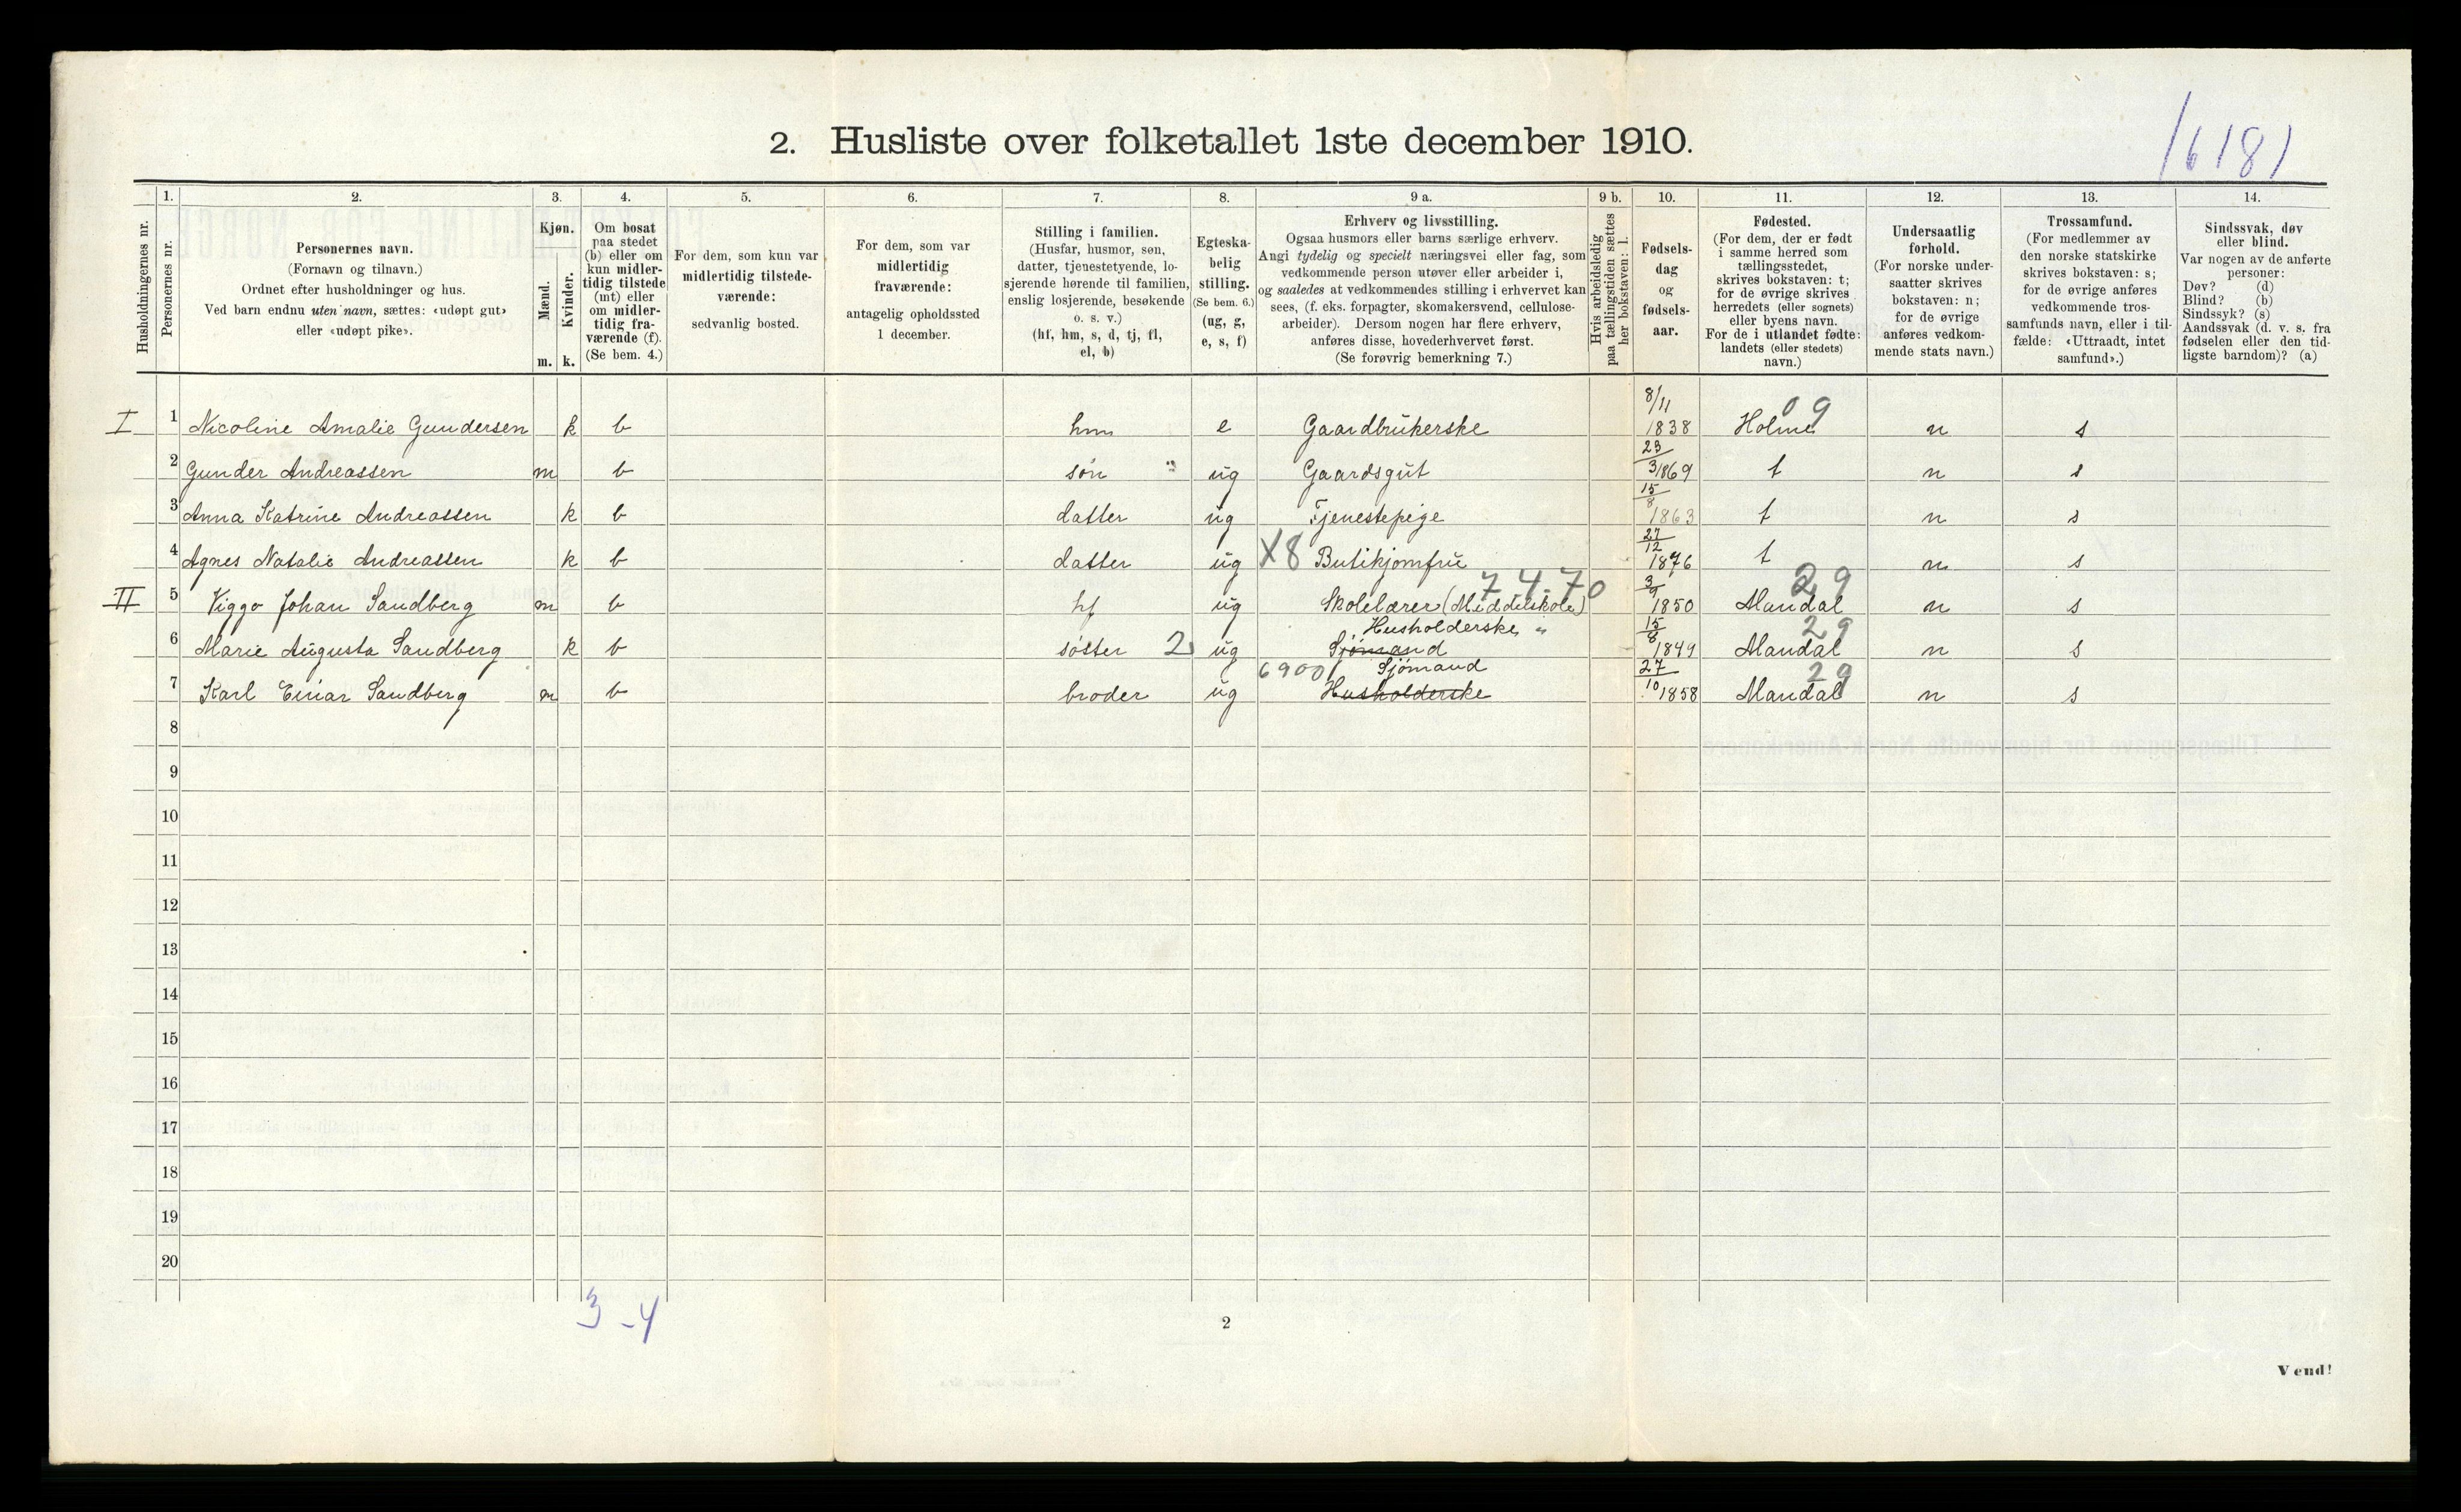 2. Husliste over folketallet 1ste december 1910.
16181
Husholdningernes nr.
1.
Personernes nr.
2.
Personernes navn.
(Fornavn og tilnavn.)
Ordnet efter husholdninger og hus.
Ved barn endnu uten navn, sættes: «udøpt gut»
eller «udøpt pike».
3.
Kjøn.
Mænd.
Kvinder.
m. k.
4.
Om bosat
paa stedet
(b) eller om
kun midler-
tidig tilstede
(mt) eller
om midler-
tidig fra-
værende (f).
(Se bem. 4.)
5.
For dem, som kun var
midlertidig tilstede-
værende:
sedvanlig bosted.
6.
For dem, som var
midlertidig
fraværende:
antagelig opholdssted
1 december.
7.
Stilling i familien.
(Husfar, husmor, søn,
datter, tjenestetyende, lo-
sjerende hørende til familien,
enslig losjerende, besøkende
o. s. v.)
(hf, hm, s, d, tj, fl,
el, b)
8.
Egteska-
belig
stilling.
(Se bem. 6.)
(ug, g,
e, s, f)
9 a.
Erhverv og livsstilling.
Ogsaa husmors eller barns særlige erhverv.
Angi tydelig og specielt næringsvei eller fag, som
vedkommende person utøver eller arbeider i,
og saaledes at vedkommendes stilling i erhvervet kan
sees, (f. eks. forpagter, skomakersvend, cellulose-
arbeider). Dersom nogen har flere erhverv,
anføres disse, hovederhvervet først.
(Se forøvrig bemerkning 7.)
9 b.
Hvis arbeidsledig
paa tællingstiden sættes
her bokstaven: l.
10.
Fødsels-
dag
og
fødsels-
aar.
11.
Fødested.
(For dem, der er født
i samme herred som
tællingsstedet,
skrives bokstaven: t;
for de øvrige skrives
herredets (eller sognets)
eller byens navn.
For de i utlandet fødte:
landets (eller stedets)
navn.)
12.
Undersaatlig
forhold.
(For norske under-
saatter skrives
bokstaven: n;
for de øvrige
anføres vedkom-
mende stats navn.)
13.
Trossamfund.
(For medlemmer av
den norske statskirke
skrives bokstaven: s;
for de øvrige anføres
vedkommende tros-
samfunds navn, eller i til-
fælde: «Uttraadt, intet
samfund».)
14.
Sindssvak, døv
eller blind.
Var nogen av de anførte
personer:
Døv? (d)
Blind? (b)
Sindssyk? (s)
Aandssvak (d. v. s. fra
fødselen eller den tid-
ligste barndom)? (a)
I 1 Nicoline Amalie Gundersen k b hm e Gaardbrukerske 8/11 1838 Holme 09 n s
2 Gunder Andreassen m b søn ug Gaardsgut 23/3 1869 t n s
3 Anna Katrine Andreassen k b datter ug Tjenestepige 15/8 1863 t n s
4 Agnes Natalie Andreassen k b datter ug X8 Butikjomfru 27/12 1876 t n s
II 5 Viggo Johan Sandberg m b hf ug Skolelærer (Middelskole) 7470 3/9 1850 Mandal 29 n s
6 Marie Augusta Sandberg k b søster 2 ug Husholderske " Sjømand 15/8 1849 Mandal 29 n s
7 Karl Einar Sandberg m b broder ug 6900/ Sjømand Husholderske 27/10 1858 Mandal 29 n s
8
9
10
11
12
13
14
15
16
17
18
19
20
3-4
2
Vend!